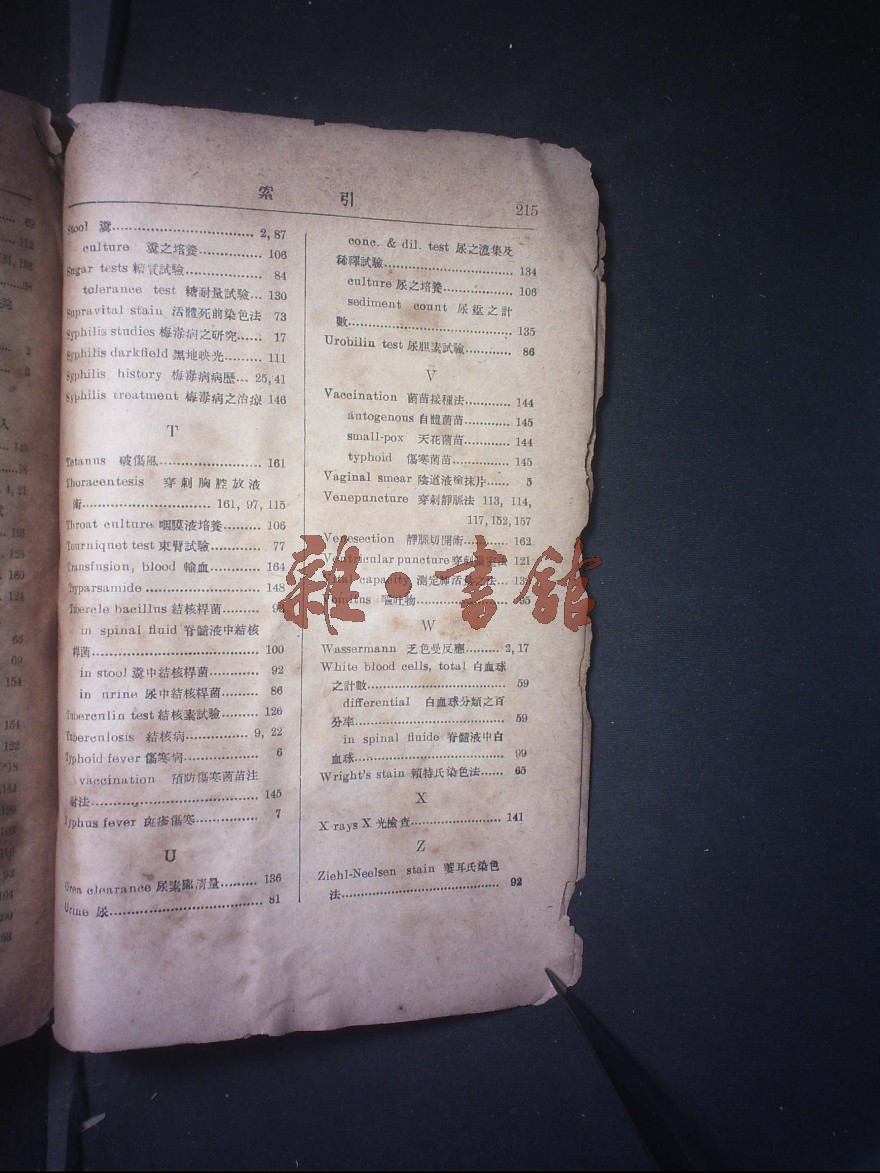 69
112
131, 198
58
2
2
入
145
18
4, 21
138
125
180
124
66
69
154
154
122
78
144
129
103
110
92
104
200
53
索 引
215
Stool 糞 2, 87
culture 糞之培養 106
Sugar tests 糖質試驗 84
tolerance test 糖耐量試驗 130
Supravital stain 活體死前染色法 73
Syphilis studies 梅毒病之研究 17
Syphilis darkfield 黑地映光 111
Syphilis history 梅毒病病歷 25, 41
Syphilis treatment 梅毒病之治療 146
T
Tetanus 破傷風 161
Thoracentesis 穿刺胸腔放液
術 161, 97, 115
Throat culture 咽膜液培養 106
Tourniquet test 束臂試驗 77
Transfusion, blood 輸血 164
Tryparsamide 148
Tubercle bacillus 結核桿菌 98
in spinal fluid 脊髓液中結核
桿菌 100
in stool 糞中結核桿菌 92
in urine 尿中結核桿菌 86
Tuberculin test 結核素試驗 126
Tuberculosis 結核病 9, 22
Typhoid fever 傷寒病 6
vaccination 預防傷寒菌苗注
射法 145
Typhus fever 斑疹傷寒 7
U
Urea clearance 尿素廓清量 136
Urine 尿 81
conc. & dil. test 尿之濃集及
稀釋試驗 134
culture 尿之培養 106
sediment count 尿渣之計
數 135
Urobilin test 尿胆素試驗 86
V
Vaccination 菌苗接種法 144
autogenous 自體菌苗 145
small-pox 天花菌苗 144
typhoid 傷寒菌苗 145
Vaginal smear 陰道液檢抹片 5
Venepuncture 穿刺靜脈法 113, 114,
117, 152, 157
Venesection 靜脈切開術 162
Ventricular puncture 穿刺腦室法 121
Vital capacity 測定肺活量之法
Vomitus 嘔吐物 95
W
Wassermann 芝色曼反應 2, 17
White blood cells, total 白血球
之計數 59
differential 白血球分類之百
分率 59
in spinal fluide 脊髓液中白
血球 99
Wright's stain 賴特氏染色法 65
X
X rays X 光檢查 141
Z
Ziehl-Neelsen stain 蕤耳氏染色
法 92
雜·書館